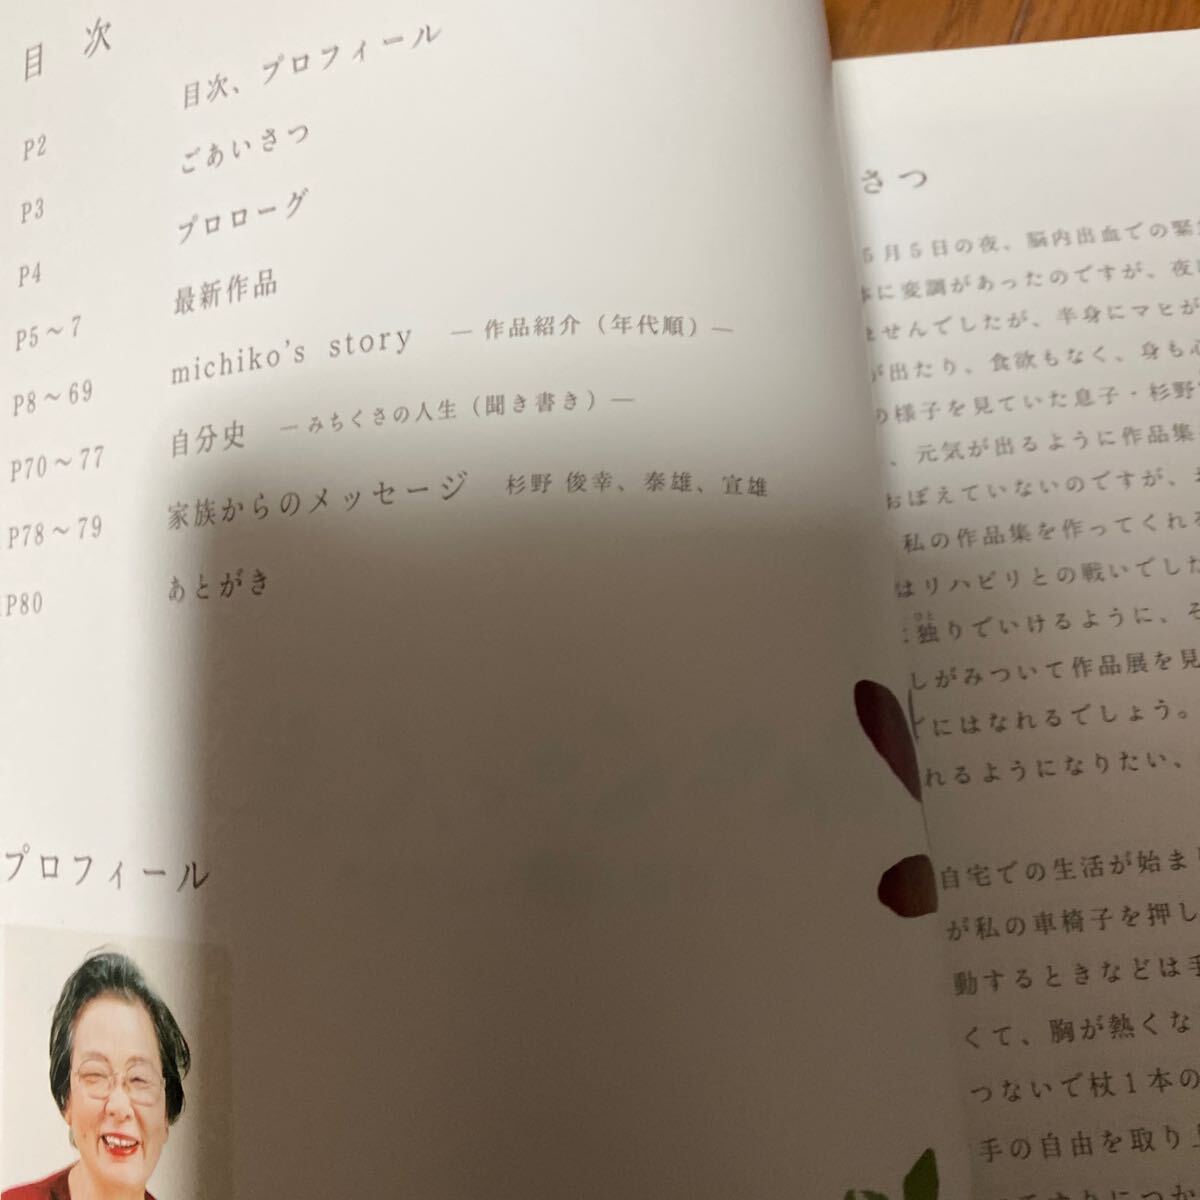 目次
P2 目次、プロフィール
P3 ごあいさつ
P4 プロローグ
P5～7 最新作品
P8～69 michiko's story ―作品紹介（年代順）―
P70～77 自分史 ―みちくさの人生（聞き書き）―
P78～79 家族からのメッセージ 杉野 俊幸、泰雄、宣雄
P80 あとがき
プロフィール
さつ
5月5日の夜、脳内出血での緊
に変調があったのですが、夜
ませんでしたが、半身にマヒが
が出たり、食欲もなく、身も心
の様子を見ていた息子・杉野
、元気が出るように作品集
おぼえていないのですが、
私の作品集を作ってくれる
はリハビリとの戦いでした
独りでいけるように、そ
ひと
しがみついて作品展を見
にはなれるでしょう。
れるようになりたい、
自宅での生活が始ま
が私の車椅子を押し
動するときなどは手
くて、胸が熱くな
つないで杖1本の
手の自由を取り